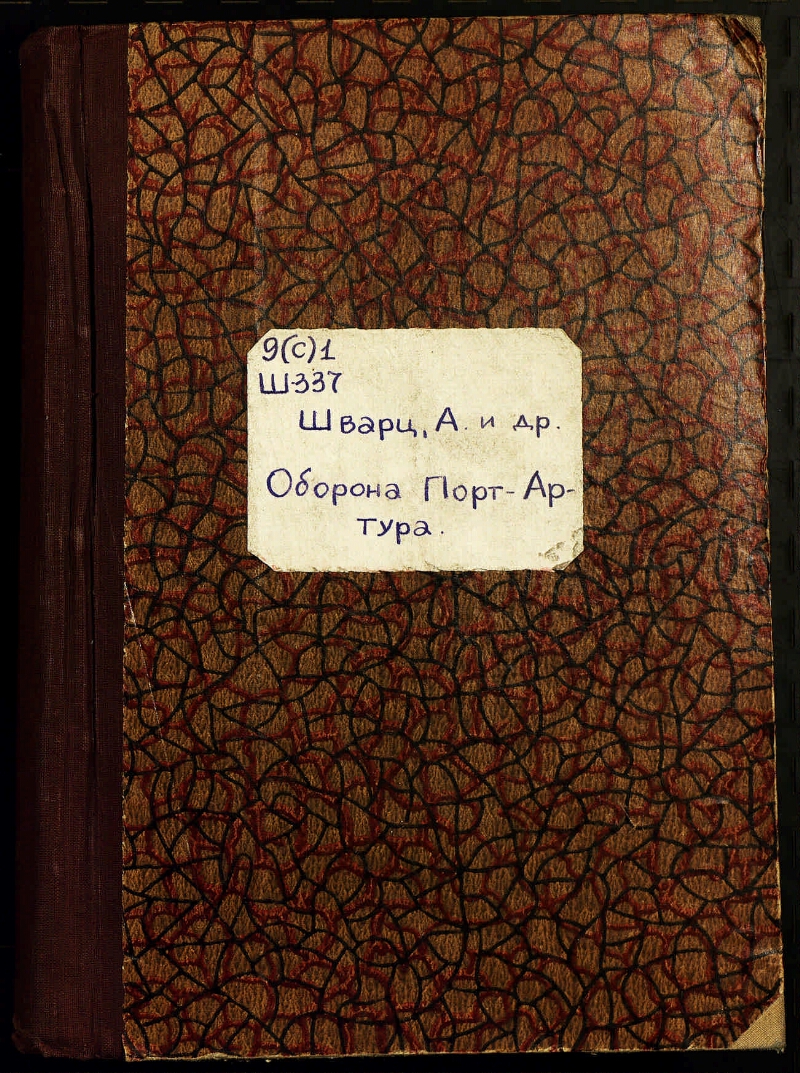 9(с)1
Ш-337
Шварц, А. и др.
Оборона Порт-Ар-
тура.